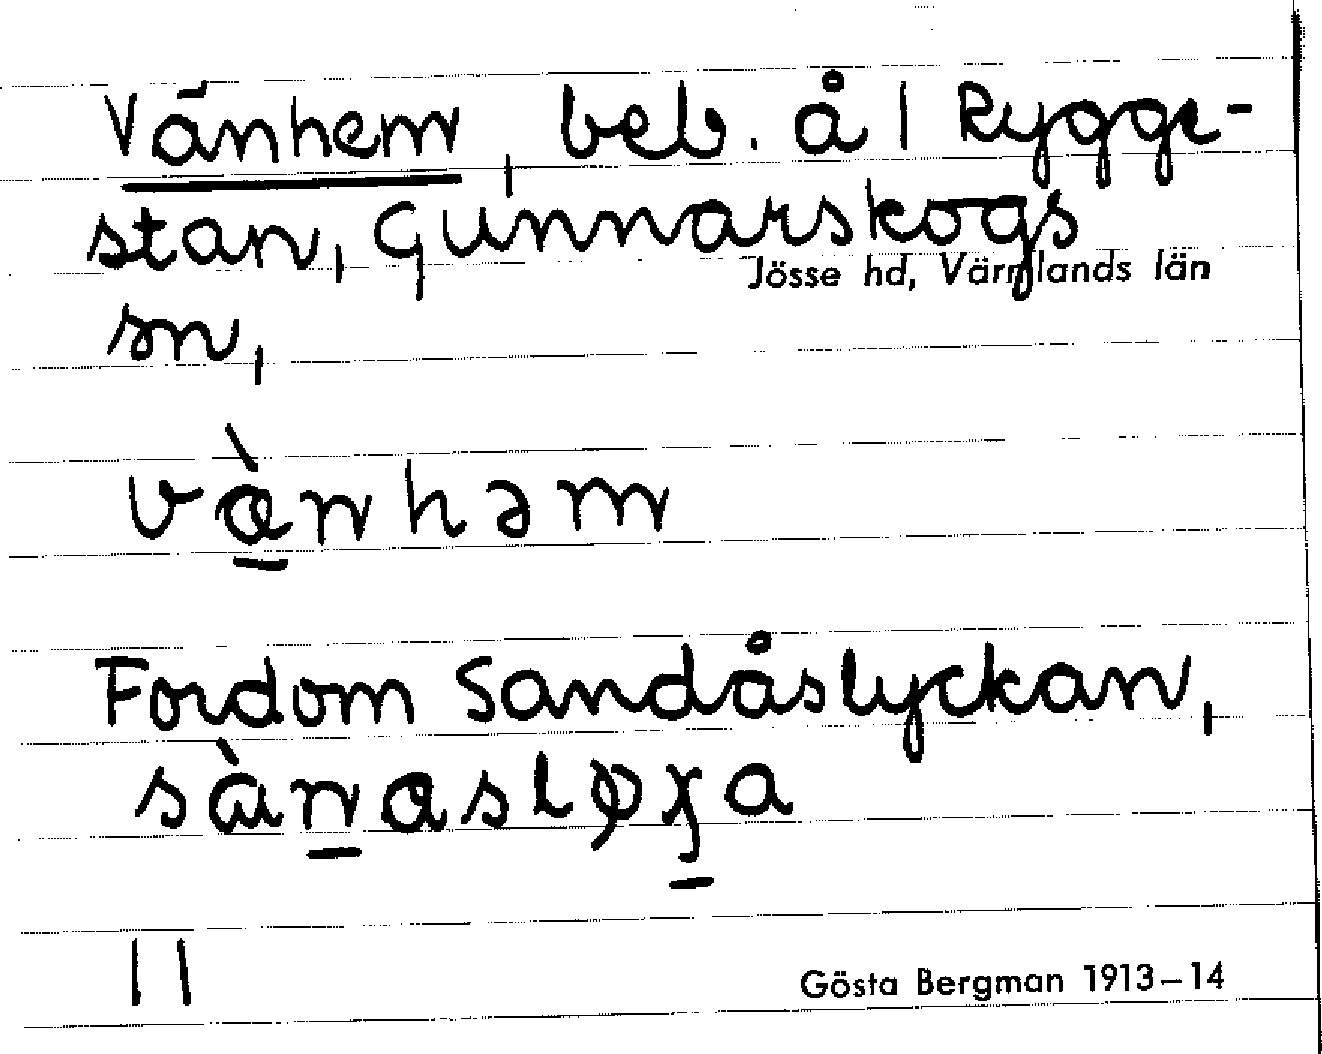 Vänhem, beb. å 1 Rygge-
stan, Gunnarskogs
Jösse hd, Värmlands län
sn,
vä̀nhəm
Fordom Sandåslyckan,
11
Gösta Bergman 1913–14